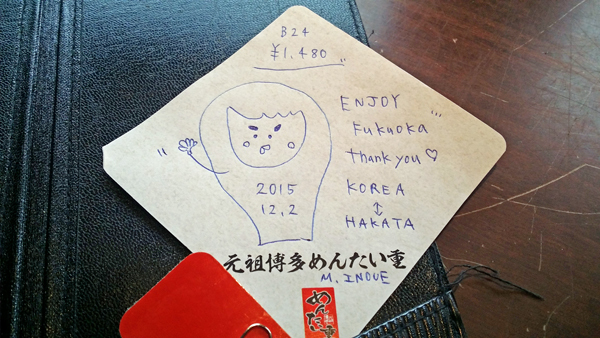 B24
¥1,480
ENJOY
Fukuoka
thank you ♡
KOREA
↕
HAKATA
2015
12.2
元祖博多めんたい重
M. INOUE
めんたい重